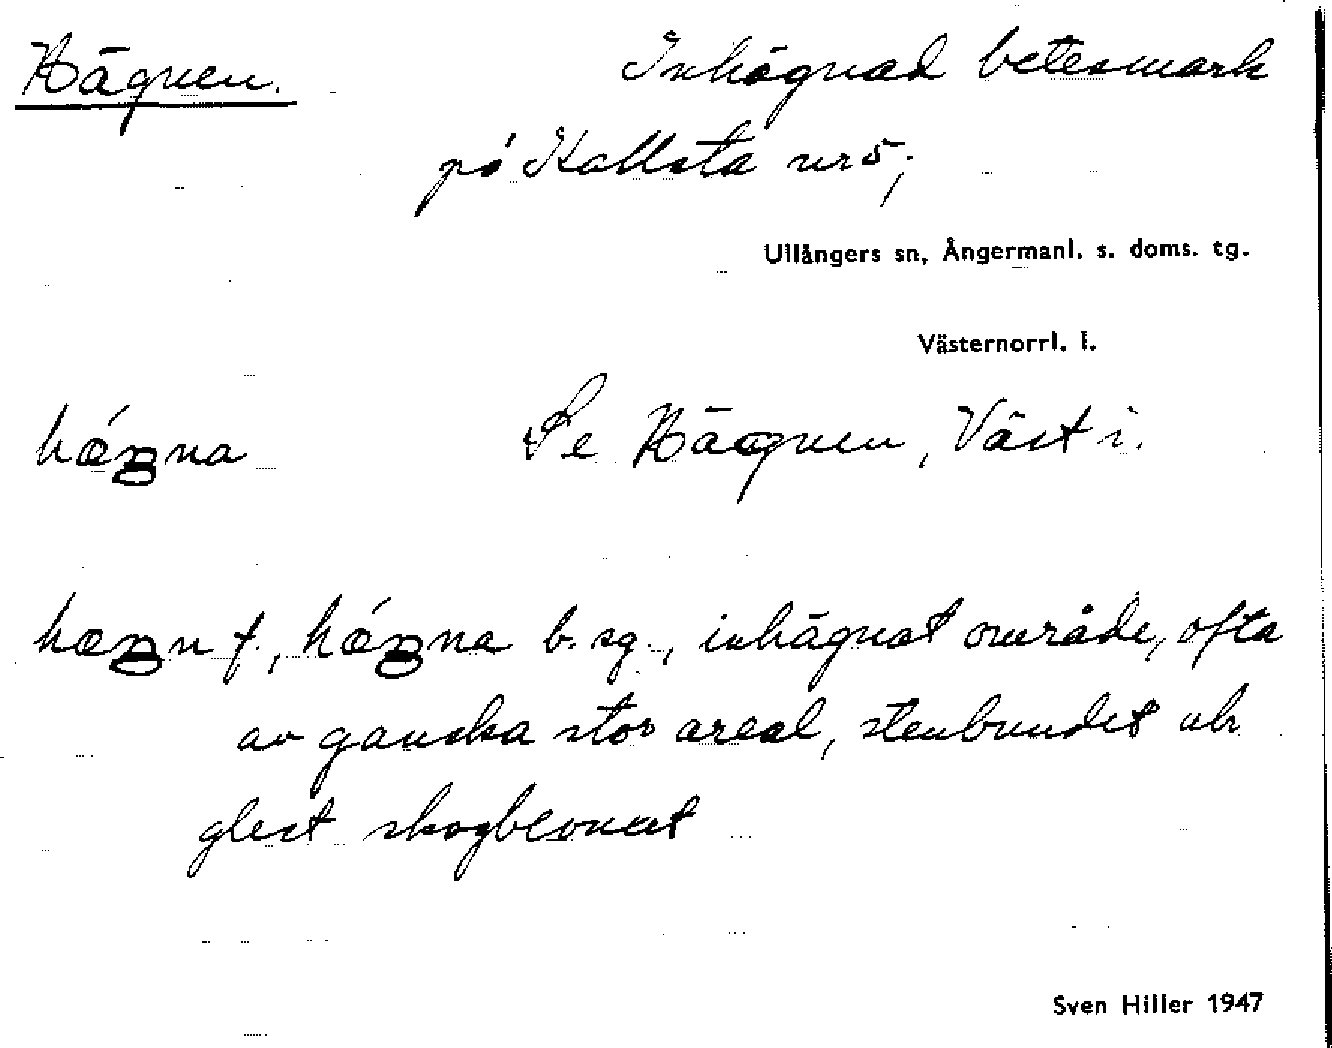 Hägnen. Inhägnad betesmark
på Kallsta nr 5;
Ullångers sn, Ångermanl. s. doms. tg.
Västernorrl. l.
hǽŋna Se Hägnen, Väst i.
hæŋn f., hǽŋna b. sg., inhägnat område, ofta
av ganska stor areal, stenbundet o
glest skogbevuxet
Sven Hiller 1947